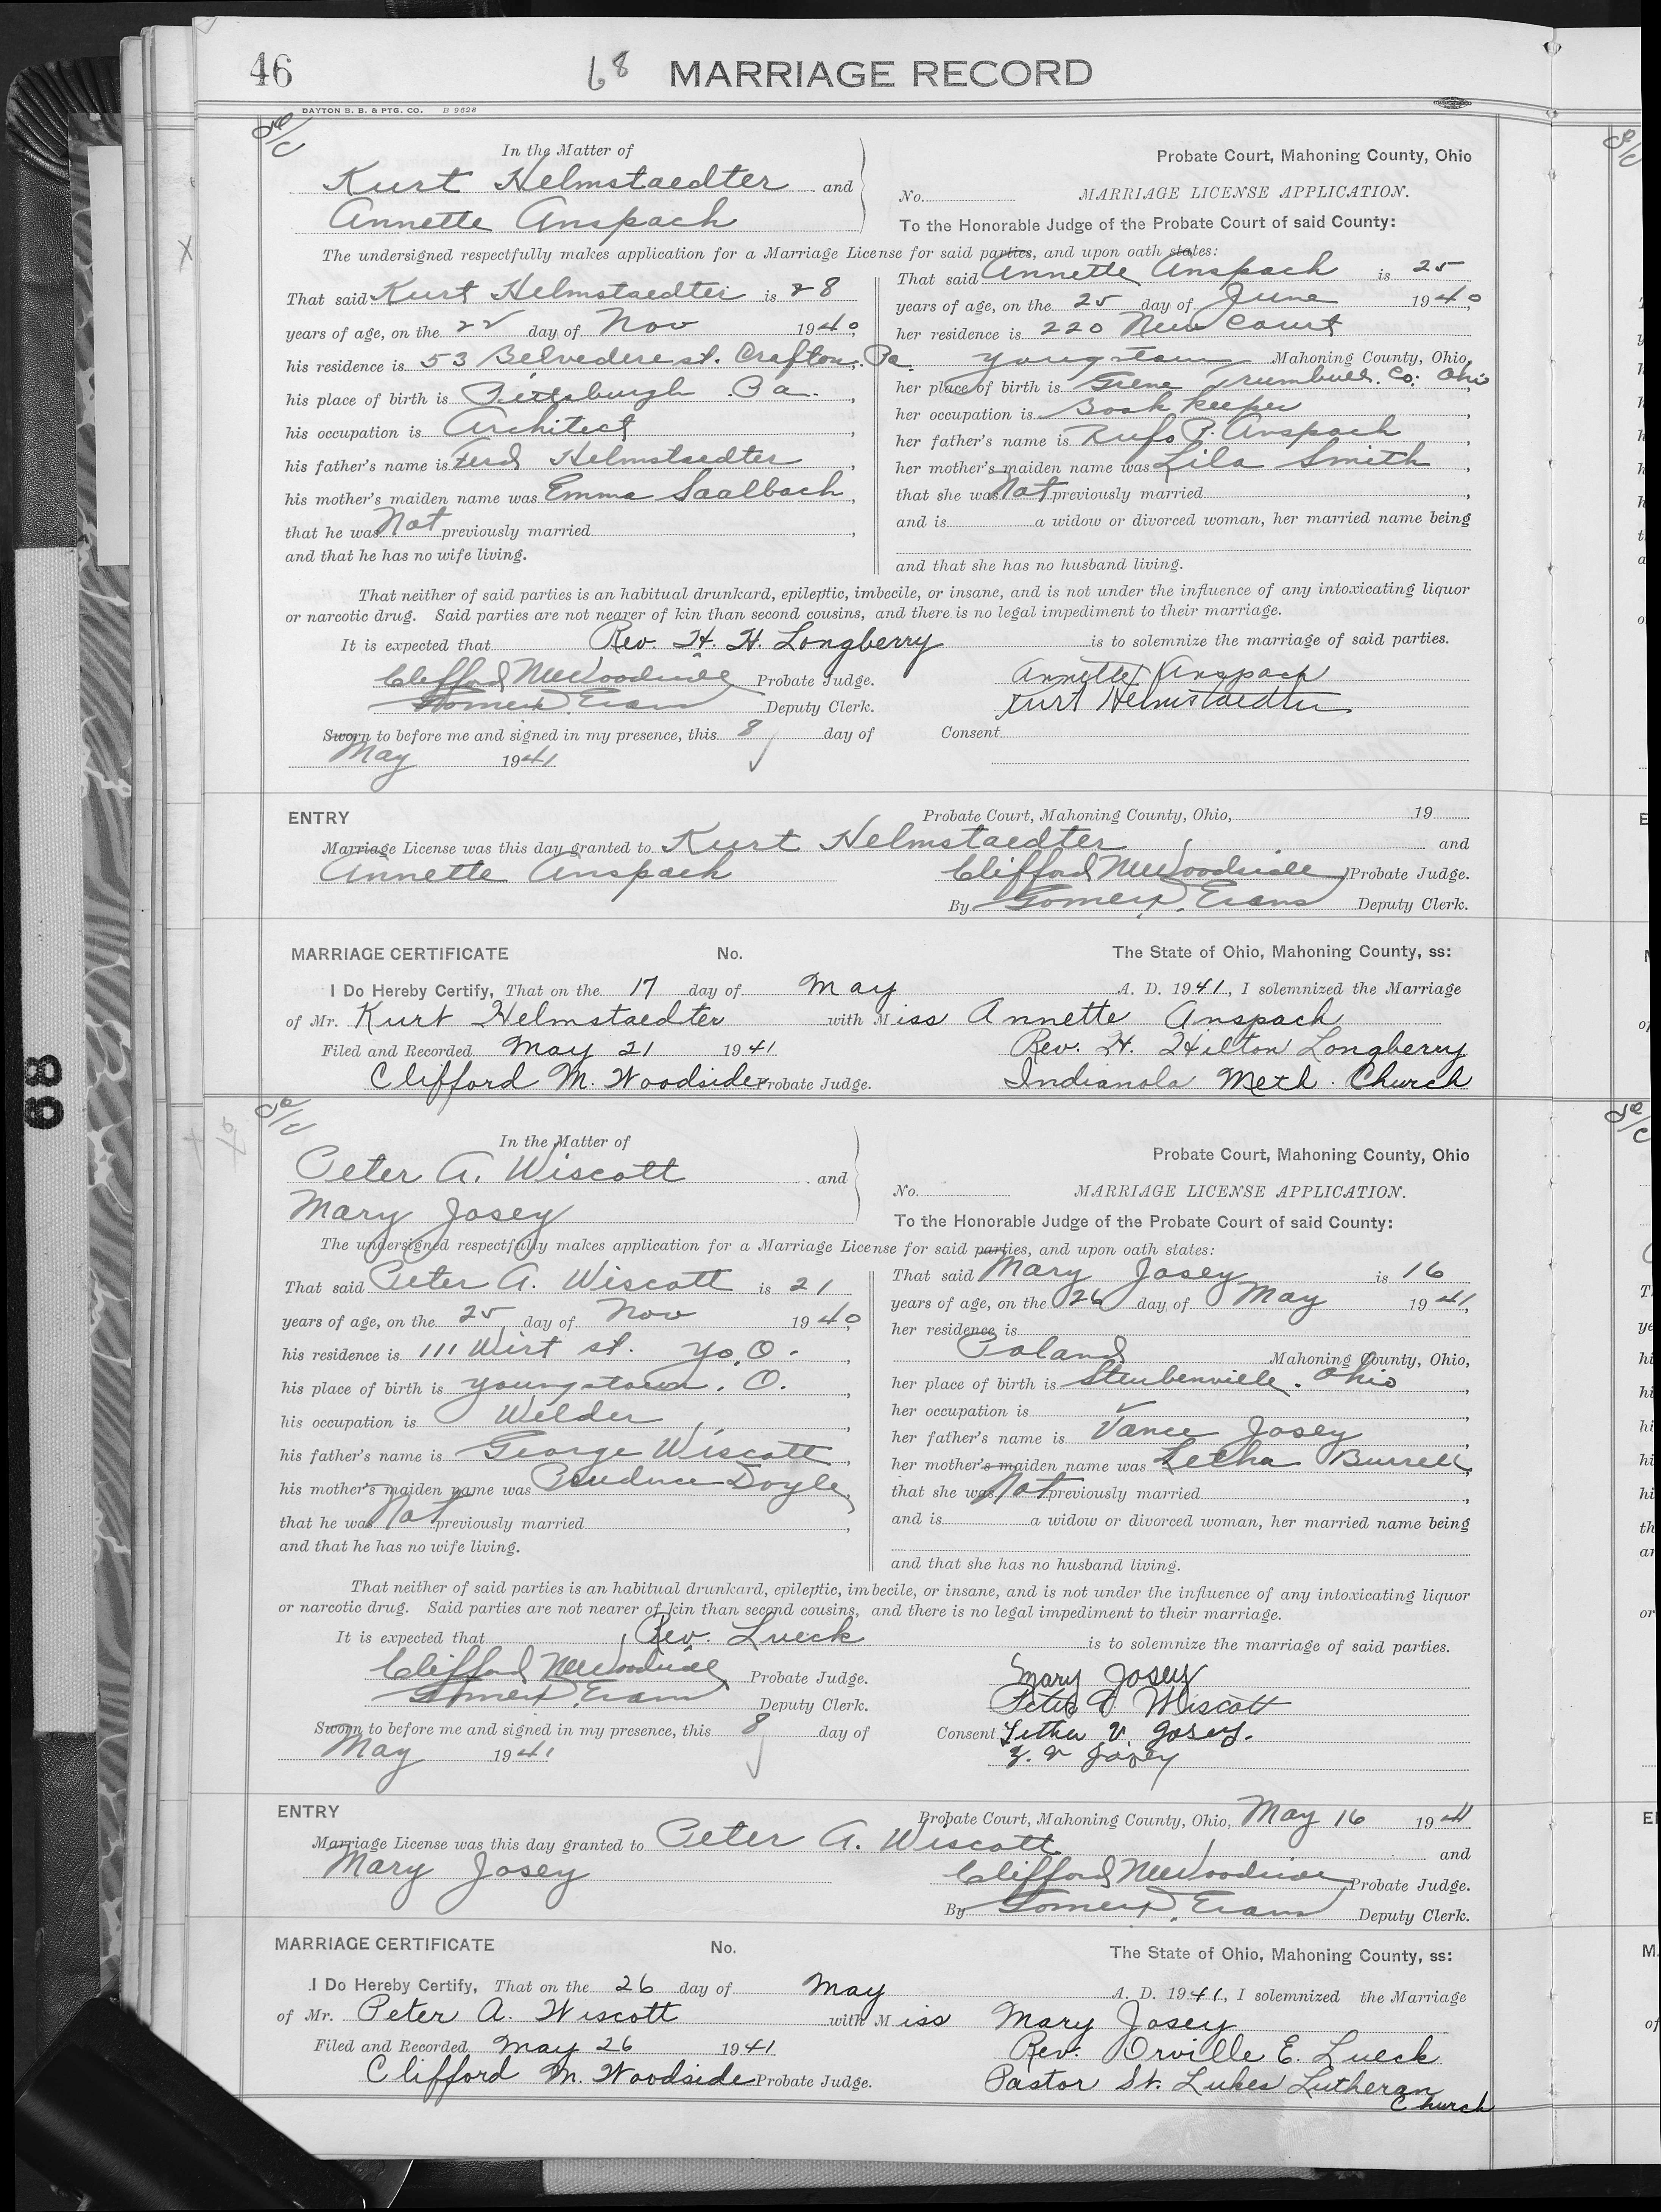 46
68 MARRIAGE RECORD
DAYTON B. B. & PTG. CO. B 9628
In the Matter of
Kurt Helmstaedter and
Annette Anspach
Probate Court, Mahoning County, Ohio
No. MARRIAGE LICENSE APPLICATION.
To the Honorable Judge of the Probate Court of said County:
The undersigned respectfully makes application for a Marriage License for said parties, and upon oath states:
That said Kurt Helmstaedter is 28
years of age, on the 22 day of Nov 1940,
his residence is 53 Belvedere st. Crafton, Pa.
his place of birth is Pittsburgh Pa.,
his occupation is Architect,
his father's name is Ferd Helmstaedter,
his mother's maiden name was Emma Saalbach,
that he was Not previously married,
and that he has no wife living.
That said Annette Anspach is 25
years of age, on the 25 day of June 1940
her residence is 220 New Court
Youngstown Mahoning County, Ohio,
her place of birth is Grene Trumbull. Co. Ohio,
her occupation is Book Keeper,
her father's name is Rufo P. Anspach,
her mother's maiden name was Lila Smith,
that she was Not previously married,
and is a widow or divorced woman, her married name being
and that she has no husband living.
That neither of said parties is an habitual drunkard, epileptic, imbecile, or insane, and is not under the influence of any intoxicating liquor
or narcotic drug. Said parties are not nearer of kin than second cousins, and there is no legal impediment to their marriage.
It is expected that Rev. H. H. Longberry is to solemnize the marriage of said parties.
Clifford M Woodside Probate Judge. Annette Anspach
Evans Deputy Clerk. Kurt Helmstaedter
Sworn to before me and signed in my presence, this 8 day of Consent
May 1941
ENTRY Probate Court, Mahoning County, Ohio, 19
Marriage License was this day granted to Kurt Helmstaedter and
Annette Anspach Clifford M Woodside Probate Judge.
By Evans Deputy Clerk.
MARRIAGE CERTIFICATE No. The State of Ohio, Mahoning County, ss:
I Do Hereby Certify, That on the 17 day of May A. D. 1941, I solemnized the Marriage
of Mr. Kurt Helmstaedter with Miss Annette Anspach
Filed and Recorded May 21 1941 Rev. H. Hilton Longberry
Clifford M. Woodside Probate Judge. Indianola Meth. Church
68
In the Matter of
Peter A. Wiscott and
Mary Josey
Probate Court, Mahoning County, Ohio
No. MARRIAGE LICENSE APPLICATION.
To the Honorable Judge of the Probate Court of said County:
The undersigned respectfully makes application for a Marriage License for said parties, and upon oath states:
That said Peter A. Wiscott is 21
years of age, on the 25 day of Nov 1940
his residence is 111 Wirt st. Yo, O.,
his place of birth is Youngstown. O.,
his occupation is Welder,
his father's name is George Wiscott,
his mother's maiden name was Prudence Doyle,
that he was Not previously married,
and that he has no wife living.
That said Mary Josey is 16
years of age, on the 26 day of May 1941,
her residence is
Poland Mahoning County, Ohio,
her place of birth is Steubenville. Ohio,
her occupation is,
her father's name is Vance Josey,
her mother's maiden name was Letha Burrell,
that she was Not previously married,
and is a widow or divorced woman, her married name being
and that she has no husband living.
That neither of said parties is an habitual drunkard, epileptic, imbecile, or insane, and is not under the influence of any intoxicating liquor
or narcotic drug. Said parties are not nearer of kin than second cousins, and there is no legal impediment to their marriage.
It is expected that Rev. Lueck is to solemnize the marriage of said parties.
Clifford M Woodside Probate Judge. Mary Josey
Evans Deputy Clerk. Peter A Wiscott
Sworn to before me and signed in my presence, this 8 day of Consent Letha V. Josey.
May 1941. Josey
ENTRY Probate Court, Mahoning County, Ohio, May 16 1941
Marriage License was this day granted to Peter A. Wiscott and
Mary Josey Clifford M Woodside Probate Judge.
By Evans Deputy Clerk.
MARRIAGE CERTIFICATE No. The State of Ohio, Mahoning County, ss:
I Do Hereby Certify, That on the 26 day of May A. D. 1941, I solemnized the Marriage
of Mr. Peter A. Wiscott with Miss Mary Josey
Filed and Recorded May 26 1941 Rev. Orville E. Lueck
Clifford M. Woodside Probate Judge. Pastor St. Lukes Lutheran
Church